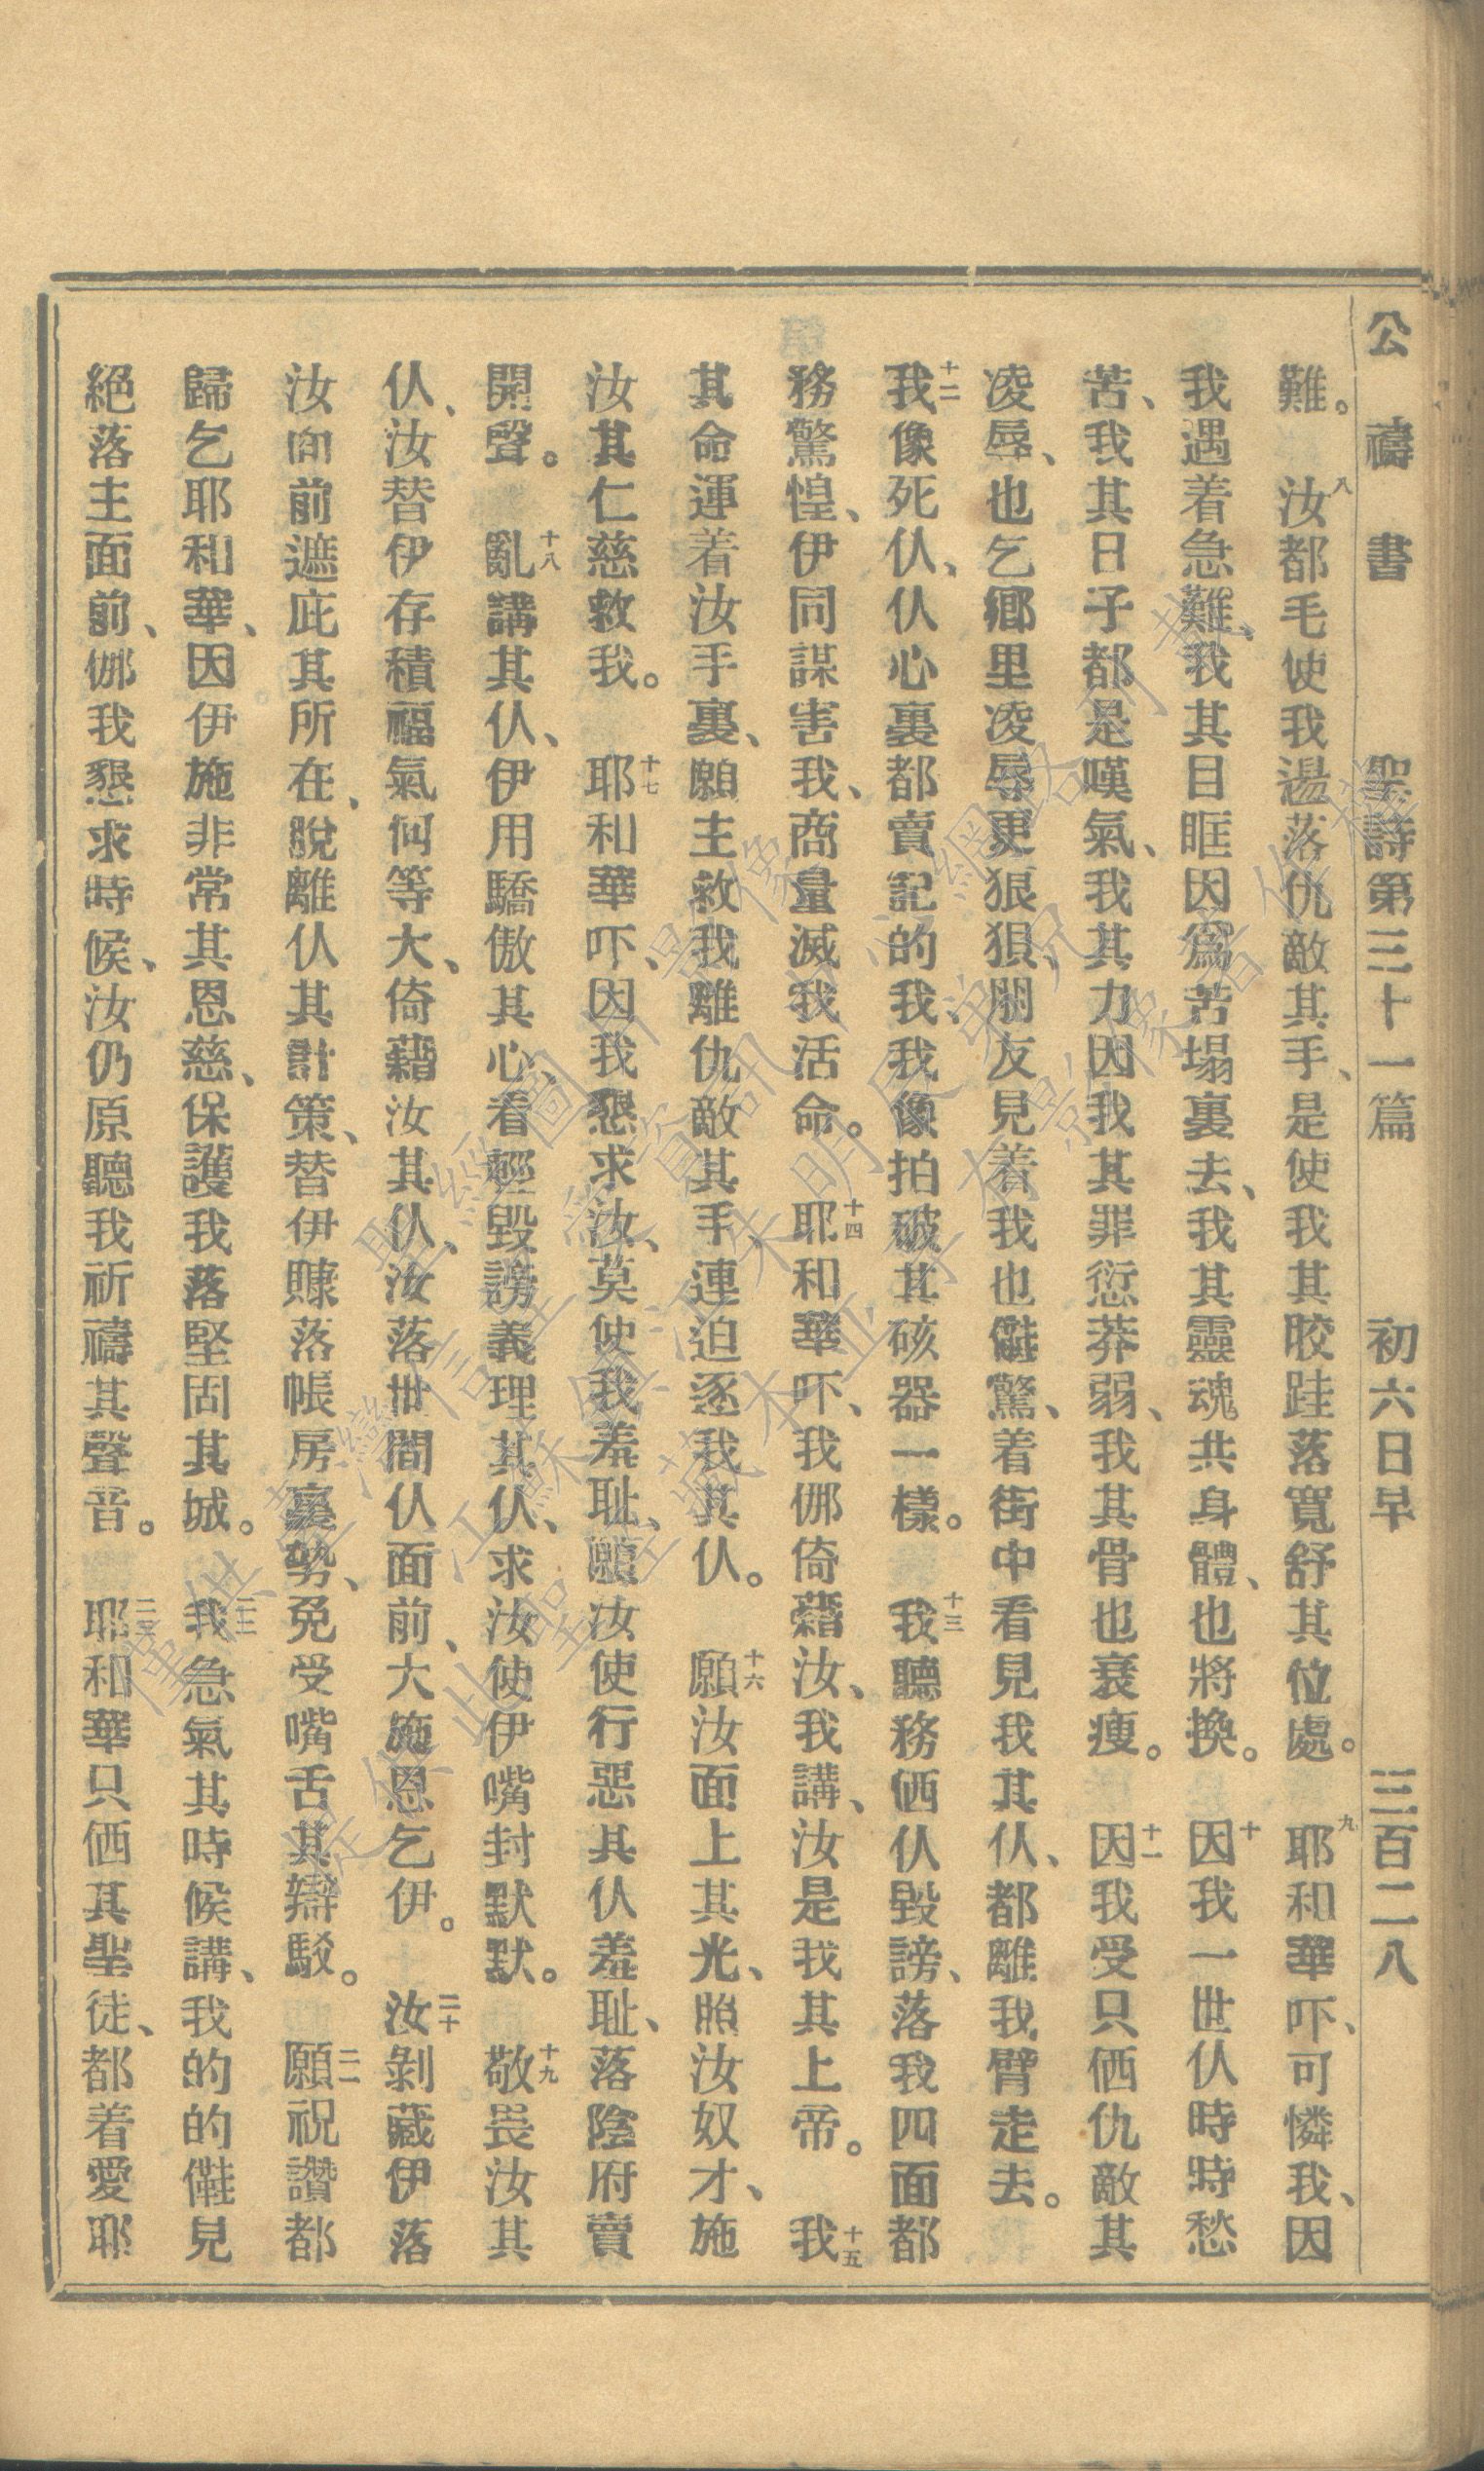 公禱書 聖詩第三十一篇 初六日早 三百二八
難。八汝都毛使我逿落仇敵其手、是使我其骹跬落寬舒其位處。九耶和華吓、可憐我、因
我遇着急難、我其目眶因爲苦塌裏去、我其靈魂共身體、也將換。十因我一世仈時時愁
苦、我其日子都是嘆氣、我其力因我其罪愆莽弱、我其骨也衰瘦。十一因我受只㑚仇敵其
凌辱、也乞鄉里凌辱更狠狽、朋友見着我也𠍲驚、着街中看見我其仈、都離我臂走去。
十二我像死仈、仈心裏都賣記的我、我像拍破其硋器一樣。十三我聽務㑚仈毀謗、落我四面都
務驚惶、伊同謀害我、商量滅我活命。十四耶和華吓、我㑚倚藉汝、我講、汝是我其上帝。十五我
其命運着汝手裏、願主救我離仇敵其手、連迫逐我其仈。十六願汝面上其光、照汝奴才、施
汝其仁慈救我。十七耶和華吓、因我懇求汝、莫使我羞耻、願汝使行惡其仈羞耻、落陰府賣
開聲。十八亂講其仈、伊用驕傲其心、看輕毀謗義理其仈、求汝使伊嘴封默默。十九敬畏汝其
仈、汝替伊存積福氣何等大、倚藉汝其仈、汝落世間仈面前、大施恩乞伊。二十汝剝藏伊落
汝面前遮庇其所在、脫離仈其計策、替伊賺落帳房裏勢、免受嘴舌其辯駁。二一願祝讚都
歸乞耶和華、因伊施非常其恩慈、保護我落堅固其城。二二我急氣其時候講、我的的𠍲見
絕落主面前、㑚我懇求時候、汝仍原聽我祈禱其聲音。二三耶和華只㑚其聖徒、都着愛耶